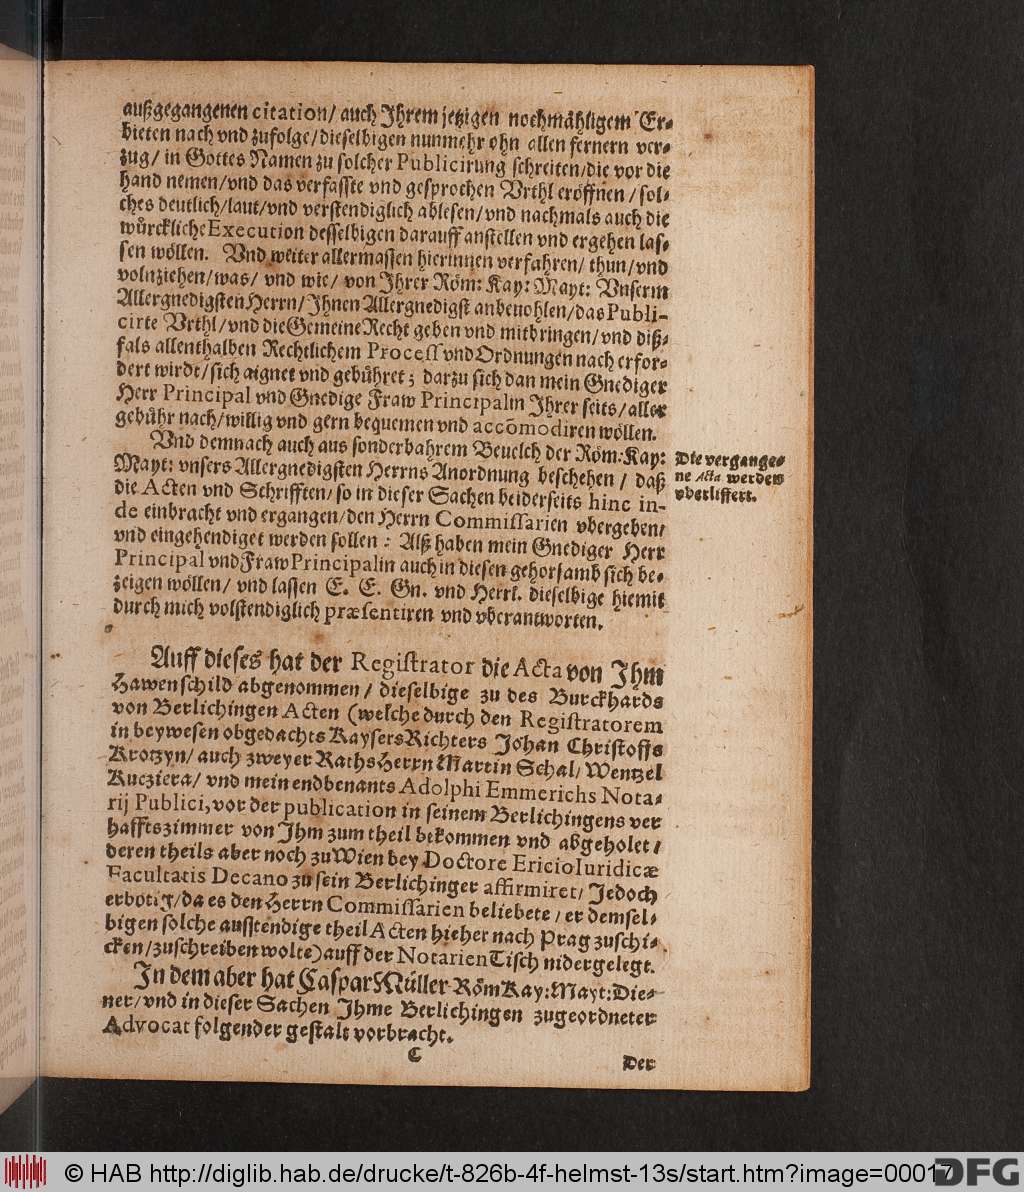 außgegangenen citation/ auch Ihrem jetzigen nochmähligem Er-
bieten nach vnd zufolge/ dieselbigen nunmehr ohn allen fernern ver-
zug/ in Gottes Namen zu solcher Publicirung schreiten/ die vor die
hand nemen/ vnd das verfasste vnd gesprochen Vrthl eröffnen / sol-
ches deutlich/ laut/ vnd verstendiglich ablesen/ vnd nachmals auch die
würckliche Execution desselbigen darauff anstellen vnd ergehen las-
sen wöllen. Vnd weiter allermassen hierinnen verfahren/ thun/ vnd
volnziehen/ was/ vnd wie/ von Ihrer Röm: Kay: Mayt: Vnserm
Allergnedigsten Herrn/ Ihnen Allergnedigst anbeuohlen/ das Publi-
cirte Vrthl/ vnd die Gemeine Recht geben vnd mitbringen/ vnd diß-
fals allenthalben Rechtlichem Process vnd Ordnungen nach erfor-
dert wirdt/ sich aignet vnd gebühret; darzu sich dan mein Gnediger
Herr Principal vnd Gnedige Fraw Principalin Ihrer seits/ aller
gebühr nach/ willig vnd gern bequemen vnd accõmodiren wöllen.
Vnd demnach auch aus sonderbahrem Beuelch der Röm: Kay:
Mayt: vnsers Allergnedigsten Herrns Anordnung beschehen / daß
die Acten vnd Schrifften/ so in dieser Sachen beiderseits hinc in-
de einbracht vnd ergangen/ den Herrn Commissarien vbergeben/
vnd eingehendiget werden sollen : Alß haben mein Gnediger Herr
Principal vnd Fraw Principalin auch in diesen gehorsamb sich be-
zeigen wöllen/ vnd lassen E. E. Gn. vnd Herrl. dieselbige hiemit
durch mich volstendiglich præsentiren vnd vberantworten.
Die vergange-
ne Acta werden
vberliffert.
Auff dieses hat der Registrator die Acta von Ihm
Hawenschild abgenommen/ dieselbige zu des Burckhards
von Berlichingen Acten (welche durch den Registratorem
in beywesen obgedachts Kaysers Richters Johan Christoffs
Krotzyn/ auch zweyer Raths Herrn Martin Schal/ Wentzel
Kucziera/ vnd mein endbenants Adolphi Emmerichs Nota-
rij Publici, vor der publication in seinem Berlichingens ver
hafftszimmer von Ihm zum theil bekommen vnd abgeholet/
deren theils aber noch zu Wien bey Doctore Ericio Iuridicæ
Facultatis Decano zu sein Berlichinger affirmiret/ Jedoch
erbötig/ da es den Herrn Commissarien beliebete / er demsel-
bigen solche ausstendige theil Acten hieher nach Prag zuschi-
cken/ zuschreiben wolte) auff der Notarien Tisch nidergelegt.
In dem aber hat Caspar Müller Röm Kay: Mayt: Die-
ner/ vnd in dieser Sachen Ihme Berlichingen zugeordneter
Advocat folgender gestalt vorbracht.
C
Der
© HAB http://diglib.hab.de/drucke/t-826b-4f-helmst-13s/start.htm?image=00017
DFG